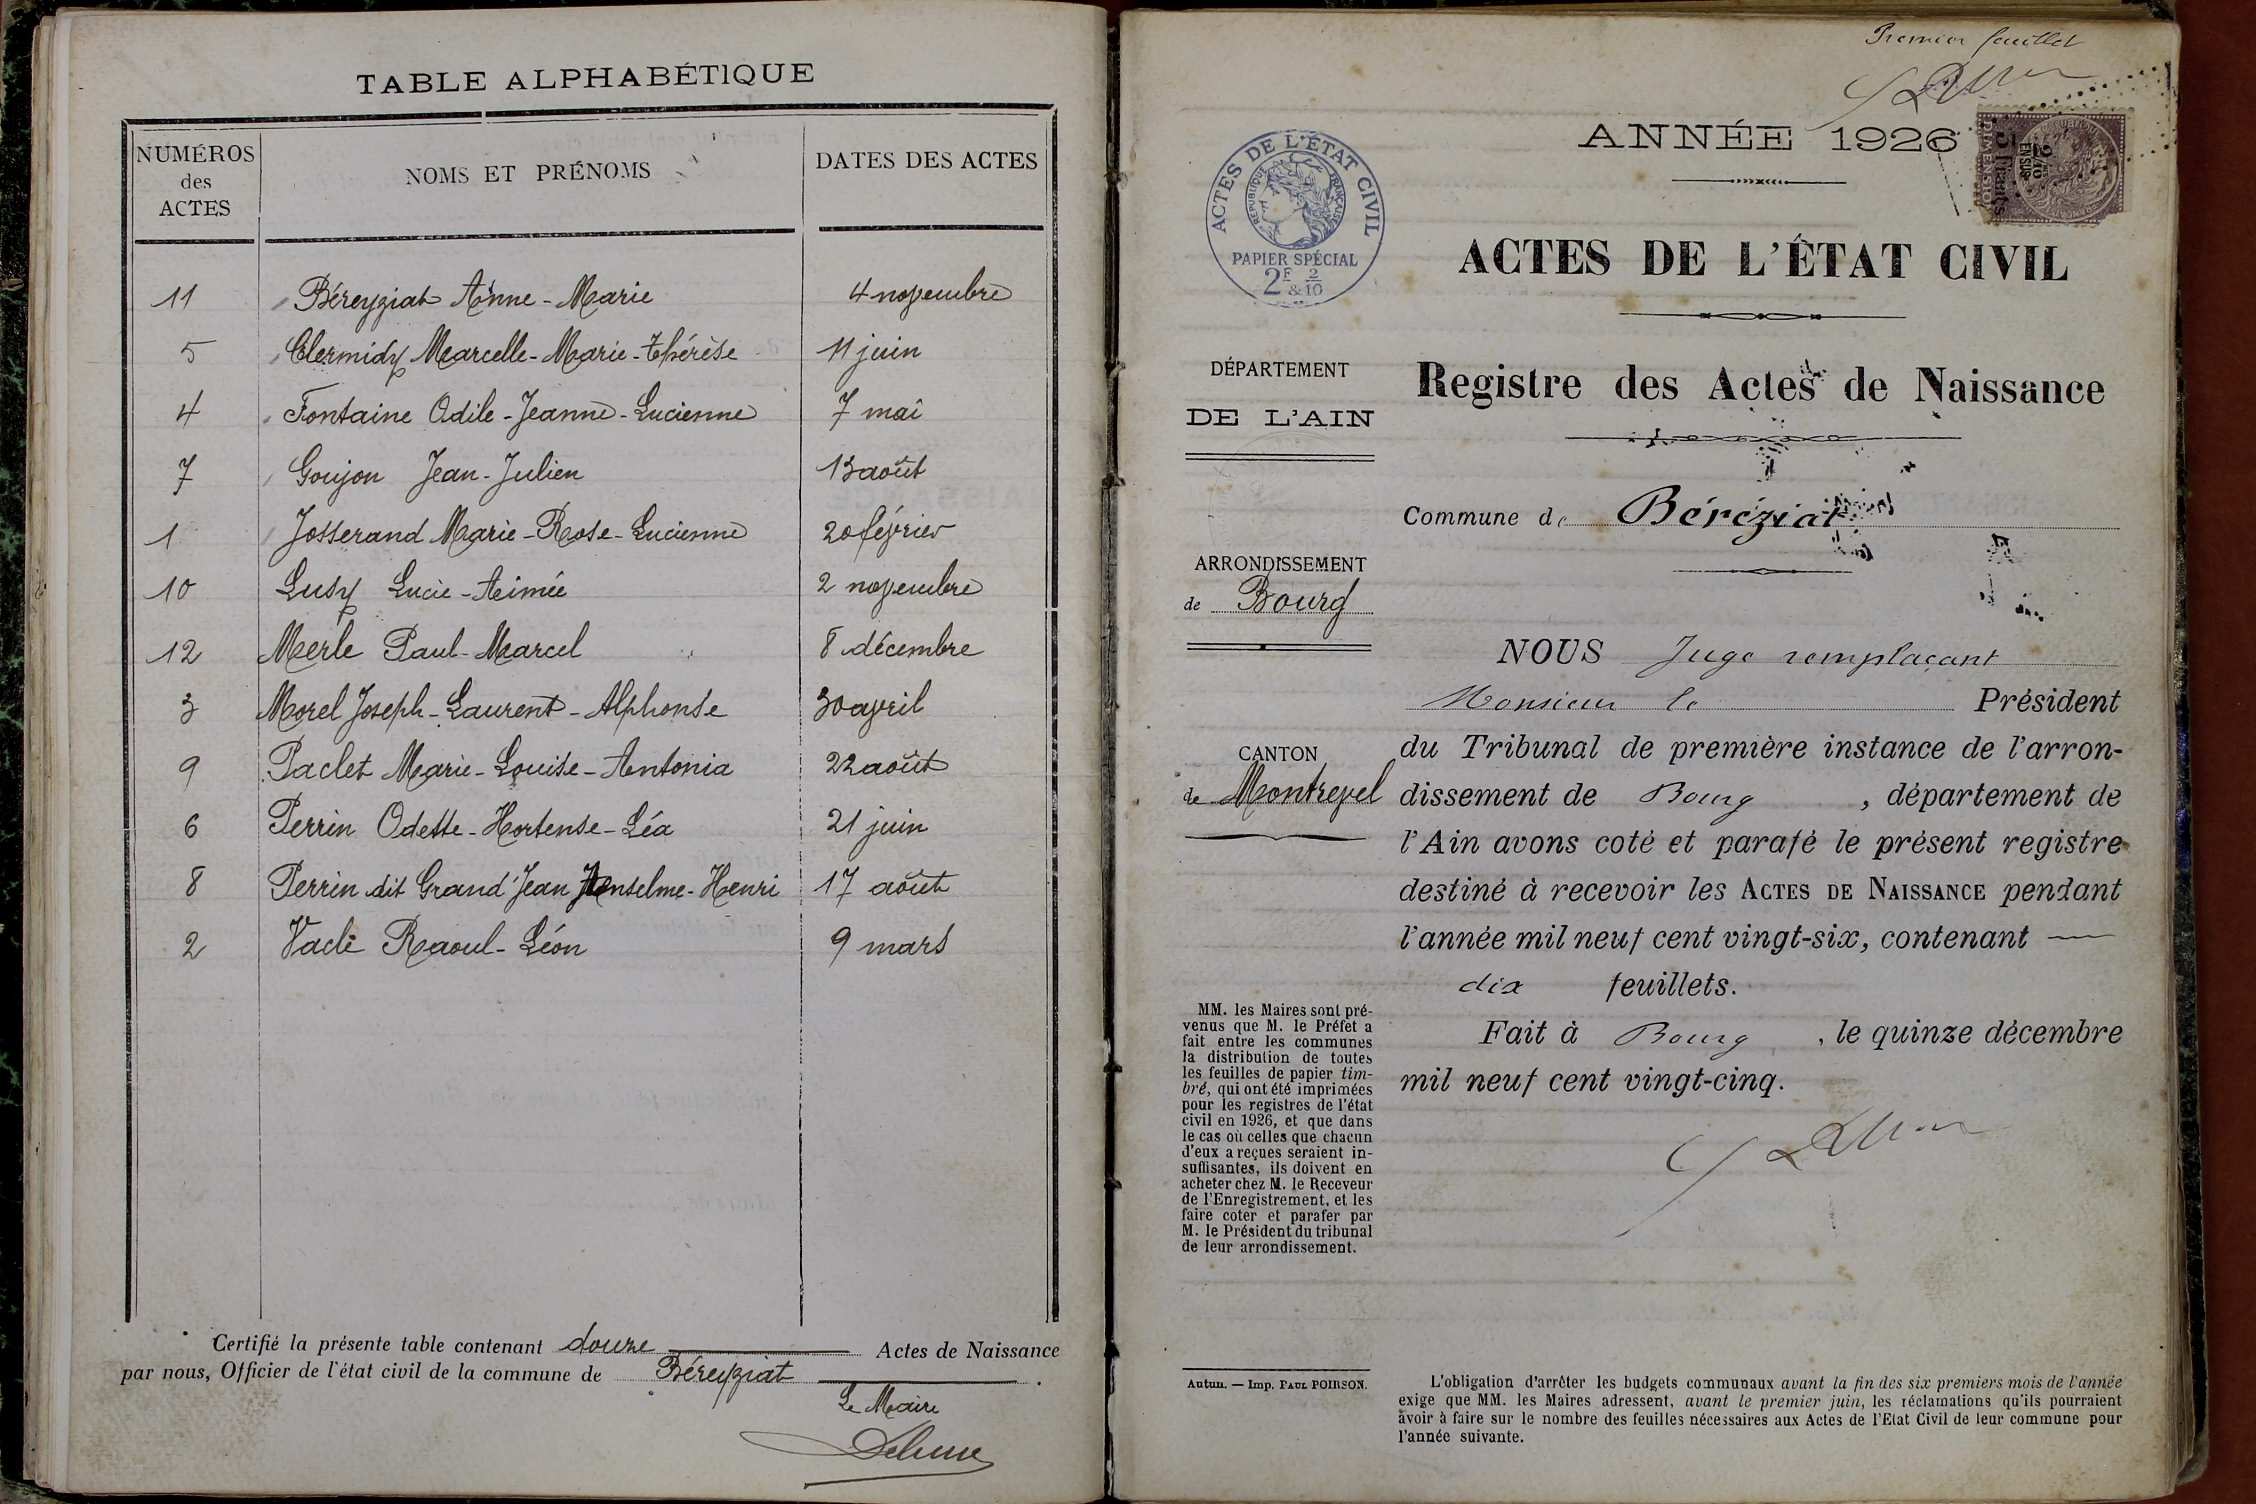 TABLE ALPHABÉTIQUE
NUMÉROS
des
ACTES
NOMS ET PRÉNOMS
DATES DES ACTES
11 Béreyziat Anne-Marie 4 novembre
5 Clermidy Marcelle-Marie-Thérèse 11 juin
4 Fontaine Odile-Jeanne-Lucienne 7 mai
7 Goujon Jean-Julien 13 août
1 Josserand Marie-Rose-Lucienne 20 février
10 Lusy Lucie-Aimée 2 novembre
12 Merle Paul-Marcel 8 décembre
3 Morel Joseph-Laurent-Alphonse 30 avril
9 Paclet Marie-Louise-Antonia 22 août
6 Perrin Odette-Hortense-Léa 21 juin
8 Perrin dit Grand'Jean Anselme-Henri 17 août
2 Vacle Raoul-Léon 9 mars
Certifié la présente table contenant douze Actes de Naissance
par nous, Officier de l'état civil de la commune de Béreyziat
Le Maire
Premier feuillet
ANNÉE 1926
ACTES DE L'ÉTAT CIVIL
RÉPUBLIQUE FRANÇAISE
PAPIER SPÉCIAL
2F & 2/10
2/10
EN SUS
DIMENSION
ACTES DE L'ÉTAT CIVIL
DÉPARTEMENT
DE L'AIN
Registre des Actes de Naissance
Commune de Béréziat
ARRONDISSEMENT
de Bourg
CANTON
de Montrevel
NOUS Juge remplaçant
Monsieur le Président
du Tribunal de première instance de l'arron-
dissement de Bourg, département de
l'Ain avons coté et parafé le présent registre
destiné à recevoir les ACTES DE NAISSANCE pendant
l'année mil neuf cent vingt-six, contenant —
dix feuillets.
Fait à Bourg, le quinze décembre
mil neuf cent vingt-cinq.
MM. les Maires sont pré-
venus que M. le Préfet a
fait entre les communes
la distribution de toutes
les feuilles de papier tim-
bré, qui ont été imprimées
pour les registres de l'état
civil en 1926, et que dans
le cas où celles que chacun
d'eux a reçues seraient in-
suffisantes, ils doivent en
acheter chez M. le Receveur
de l'Enregistrement, et les
faire coter et parafer par
M. le Président du tribunal
de leur arrondissement.
Autun. — Imp. PAUL POIRSON.
L'obligation d'arrêter les budgets communaux avant la fin des six premiers mois de l'année
exige que MM. les Maires adressent, avant le premier juin, les réclamations qu'ils pourraient
avoir à faire sur le nombre des feuilles nécessaires aux Actes de l'Etat Civil de leur commune pour
l'année suivante.